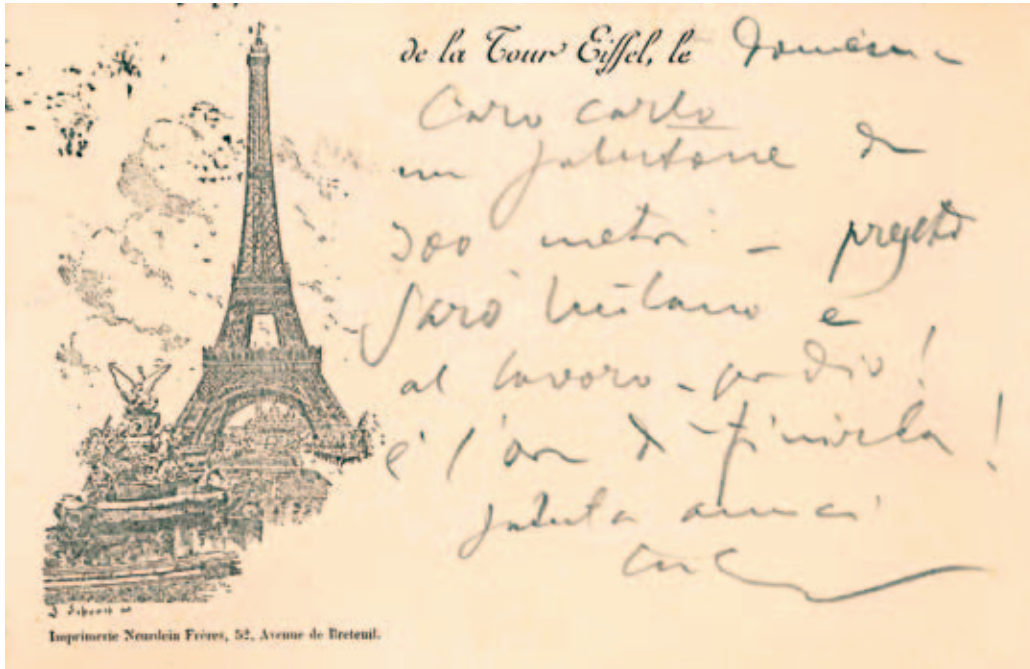 de la Tour Eiffel, le Domenica
Caro Carlo
un salutone di
300 metri –
sarò Milano e
al lavoro – per Dio!
è l'ora di finirla!
saluta amici
Imprimerie Neurdein Frères, 52, Avenue de Breteuil.